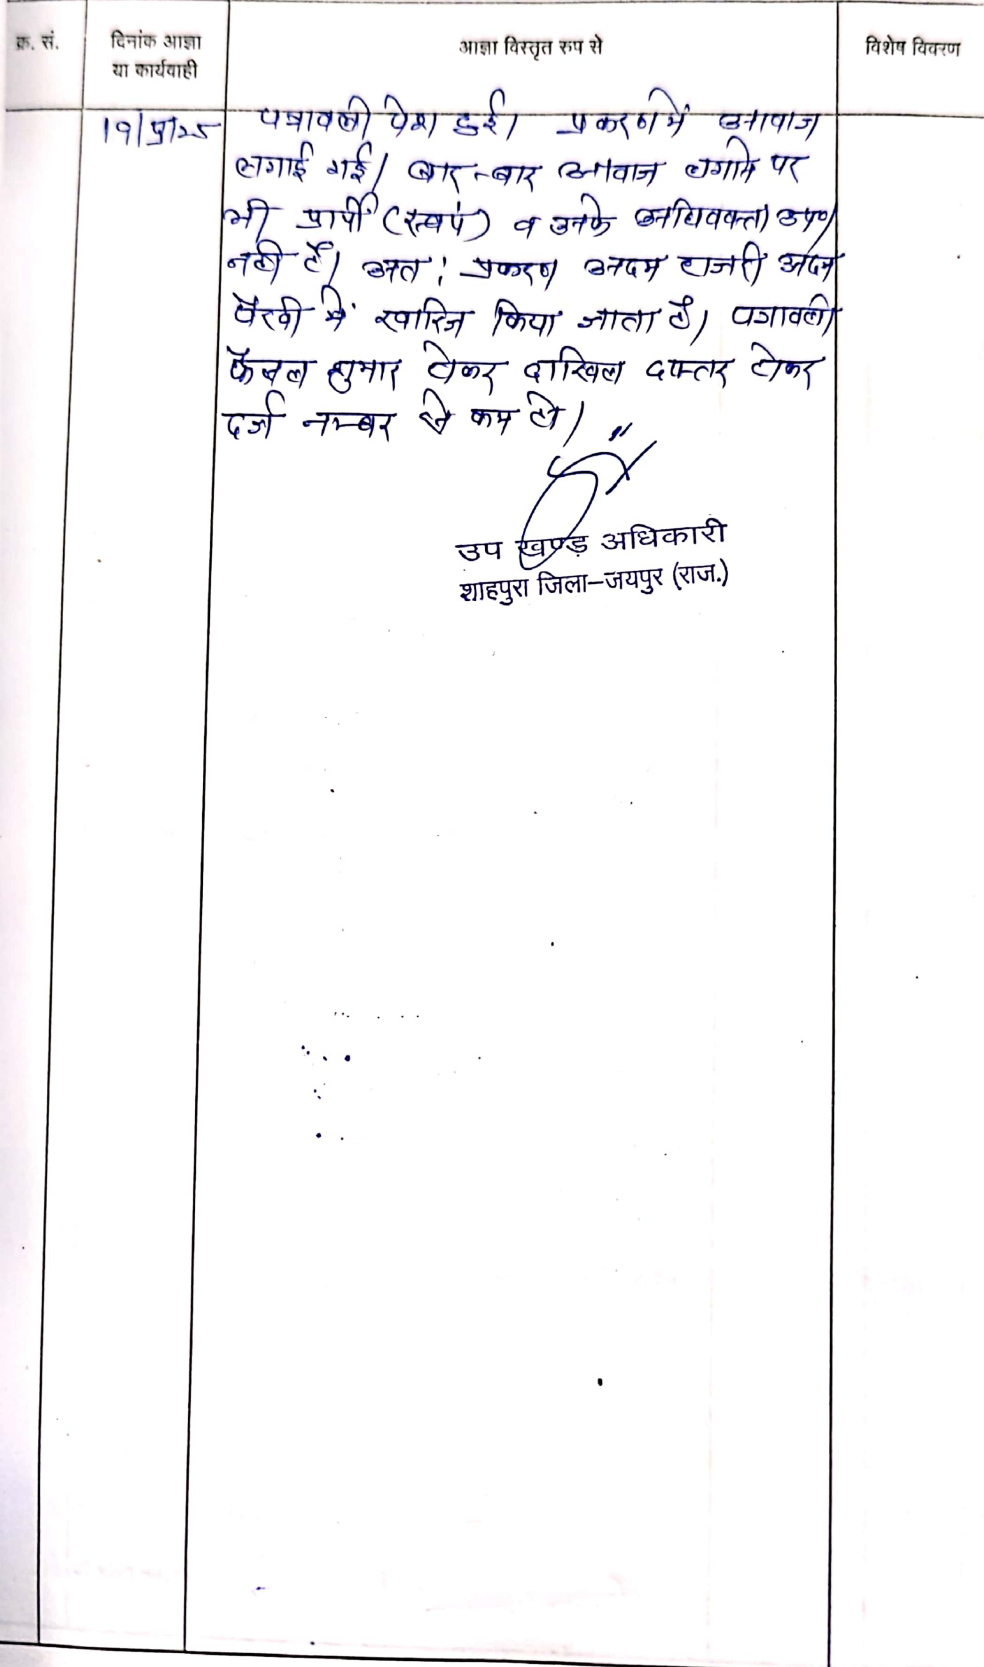 क्र. सं.
दिनांक आज्ञा
या कार्यवाही
आज्ञा विस्तृत रुप से
विशेष विवरण
पत्रावली पेश हुई। प्रकरण में आवाज
लगाई गई। बार-बार आवाज लगाने पर
भी प्रार्थी (स्वयं) व उनके अधिवक्ता उप०
नही है। अत: प्रकरण अदम हाजरी अदम
पैरवी में खारिज किया जाता है। पत्रावली
फैसल शुमार होकर दाखिल दफ्तर होकर
दर्ज नम्बर से कम हो।
उप खण्ड अधिकारी
शाहपुरा जिला–जयपुर (राज.)